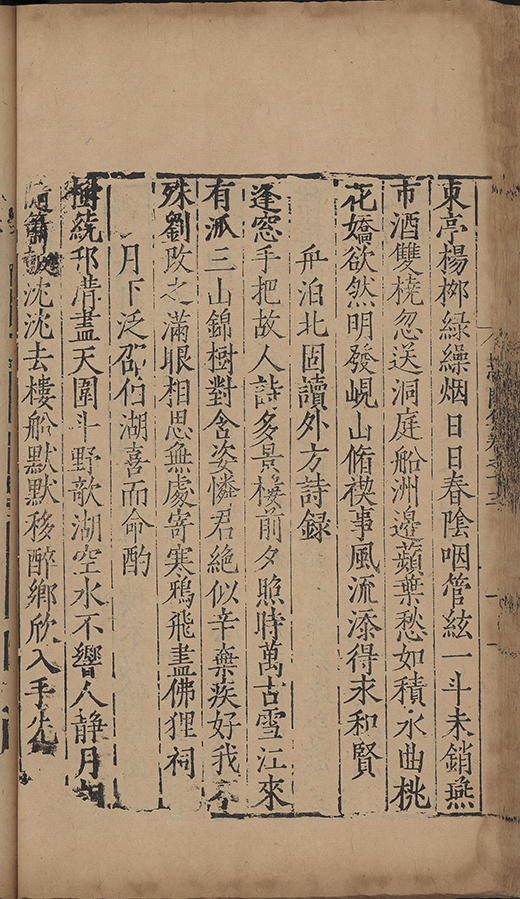 東亭楊柳綠繰烟日日春陰咽管絃一斗未銷燕
市酒雙橈忽送洞庭船洲邊蘋葉愁如積水曲桃
花嬌欲然明發峴山脩禊事風流添得永和賢
舟泊北固讀外方詩録
逢窓手把故人詩多景樓前夕照時萬古雪江來
有派三山錦樹對含姿憐君絶似辛棄疾好我不
殊劉改之滿眼相思無處寄寒鴉飛盡佛狸祠
月下泛邵伯湖喜而命酌
樹繞邗溝盡天圍斗野歌湖空水不響人静月
沈沈去樓船默默移醉鄉欣入手先
卷之十三